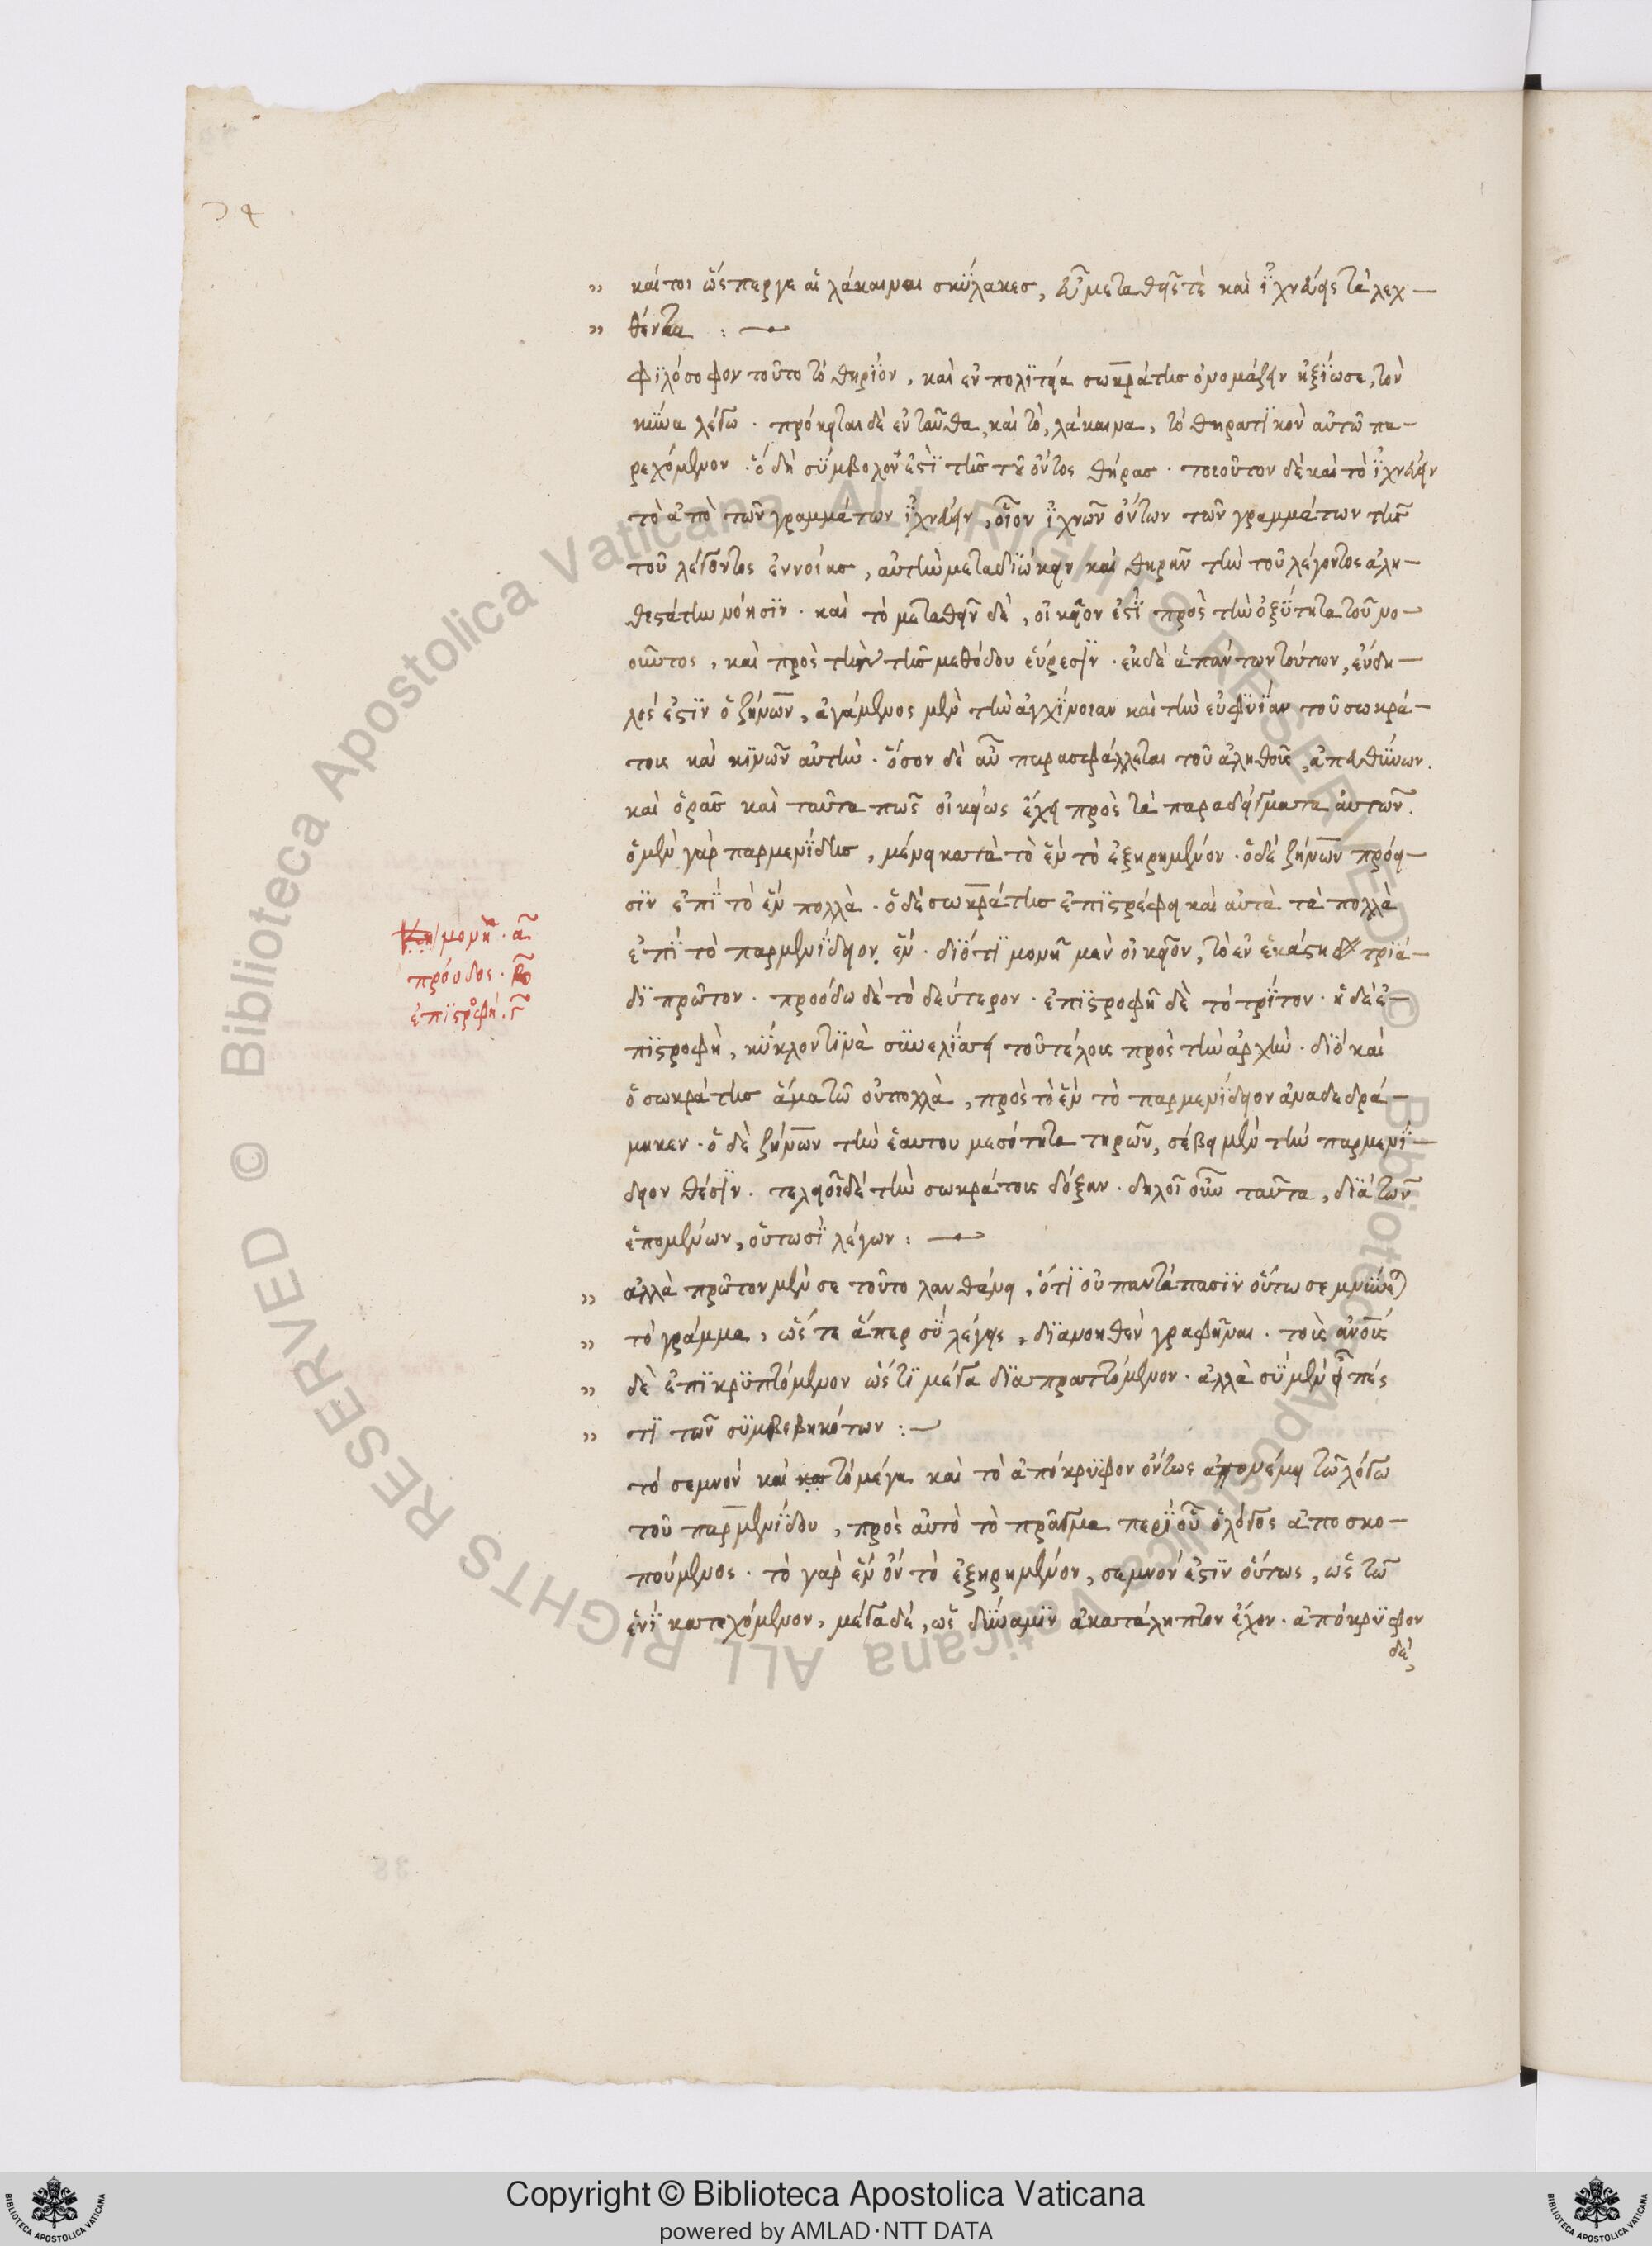 καίτοι ὥσπερ γε αἱ λάκαιναι σκύλακες, εὖ μεταθεῖς τὲ καὶ ἰχνεύεις τὰ λεχ-
θέντα :
φιλόσοφον τοῦτο τὸ θηρίον, καὶ ἐν πολιτεία σωκράτης ὀνομάζειν ἠξίωσε, τὸν
κύνα λέγω. πρόκειται δὲ ἐνταῦθα, καὶ τὸ, λάκαινα, τὸ θηρατικὸν αὐτῶ πα-
ρεχόμενον. ὅ δὴ σύμβολον ἐστὶ τῆς τοῦ ὄντος θήρας. τοιοῦτον δὲ καὶ τὸ ἰχνεύειν
τὸ ἀπὸ τῶν γραμμάτων ἰχνεύειν, οἷον ἰχνῶν ὄντων τῶν γραμμάτων τῆς
τοῦ λέγοντος ἐννοίας, αὐτὴν μεταδιώκειν καὶ θηρᾶν τὴν τοῦ λέγοντος ἀλη-
θεστάτην νόησιν. καὶ τὸ μεταθεῖν δὲ, οἰκεῖον ἐστὶ πρὸς τὴν ὀξύτητα τοῦ νο-
οῦντος, καὶ πρὸς τὴν τῆς μεθόδου εὕρεσιν. ἐκ δὲ ἁπάντων τούτων, εὔδη-
λός ἐστιν ὁ ζήνων, ἀγάμενος μὲν τὴν ἀγχίνοιαν καὶ τὴν εὐφυΐαν τοῦ σωκρά-
τους καὶ κινῶν αὐτὴν. ὅσον δὲ αὖ παρασφάλλεται τοῦ ἀληθοῦς, ἀπευθύνων.
καὶ ὁρᾶς καὶ ταῦτα πῶς οἰκείως ἔχει πρὸς τὰ παραδείγματα αὐτῶν.
ὁ μὲν γὰρ παρμενίδης, μένει κατὰ τὸ ἓν τὸ ἐξηρημένον. ὁ δὲ ζήνων πρόει-
σιν ἐπὶ τὸ ἓν πολλὰ. ὁ δὲ σωκράτης ἐπιστρέφει καὶ αὐτὰ τὰ πολλὰ
ἐπὶ τὸ παρμενίδειον ἓν. διότι μονῆ μὲν οἰκεῖον, τὸ ἐν ἑκάστη τριά-
δι πρῶτον. προόδω δὲ τὸ δεύτερον. ἐπιστροφῆ δὲ τὸ τρίτον. ἡ δὲ ἐ-
πιστροφὴ, κύκλον τινὰ συνελίσσει τοῦ τέλους πρὸς τὴν ἀρχὴν. διὸ καὶ
ὁ σωκράτης ἅμα τῶ οὐ πολλὰ, πρὸς τὸ ἓν τὸ παρμενίδειον ἀναδεδρά-
μηκεν. ὁ δὲ ζήνων τὴν ἑαυτου μεσότητα τηρῶν, σέβει μὲν τὴν παρμενί-
δειον θέσιν. τελειοῖ δὲ τὴν σωκράτους δόξαν. δηλοῖ οὖν ταῦτα, διὰ τῶν
ἑπομένων, οὕτωσὶ λέγων :
ἀλλὰ πρῶτον μὲν σε τοῦτο λανθάνει, ὅτι οὐ παντάπασιν οὕτω σεμνύνεται
τὸ γράμμα, ὥς τε ἅπερ σὺ λέγεις, διανοηθὲν γραφῆναι. τοὺς ἀνους
δὲ ἐπικρυπτόμενον ὥς τι μέγα διαπραττόμενον. ἀλλὰ σὺ μὲν εἶπές
τι τῶν συμβεβηκότων :
τὸ σεμνὸν καὶ κα τὸ μέγα καὶ τὸ ἀπόκρυφον ὄντως ἀπονέμει τῶ λόγω
τοῦ παρμενίδου, πρὸς αὐτὸ τὸ πρᾶγμα περὶ οὗ ὁ λόγος ἀποσκο-
πούμενος. τὸ γὰρ ἓν ὂν τὸ ἐξηρημένον, σεμνόν ἐστιν οὕτως, ὡς τῶ
ἑνὶ κατεχόμενον, μέγα δὲ, ὡς δύναμιν ἀκατάληπτον ἔχον. ἀπόκρυφον
δὲ,
μονὴ. α
πρόοδος. β
ἐπιστροφή. γ
© Biblioteca Apostolica Vaticana ALL RIGHTS RESERVED
© Biblioteca Apostolica Vaticana ALL RIGHTS RESERVED
Copyright © Biblioteca Apostolica Vaticana
powered by AMLAD·NTT DATA